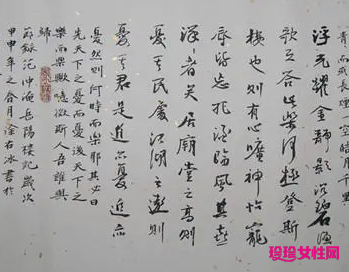 青而或長煙一空皓月千里
浮光耀金靜影沉璧漁
歌互答此樂何極登斯
樓也則有心曠神怡寵
辱皆忘把酒臨風其喜
洋洋者矣居廟堂之高則
憂其民處江湖之遠則
憂其君是進亦憂退亦
憂然則何時而樂耶其必曰
先天下之憂而憂後天下之
樂而樂歟噫微斯人吾誰與
歸
節錄范仲淹岳陽樓記歲次
甲申年之月右冰書於
女性网